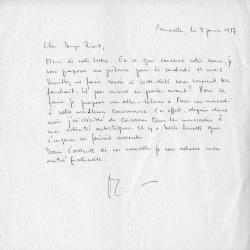 Marseille, le 9 janvier 1977
Cher
Merci de votre lettre. En ce qui concerne votre cours, je
vous propose ma présence pour le vendredi 11 mars.
Veuillez me faire savoir si cette date vous convient. Ne
faudrait-il pas mieux en parler avant? Dans ce
cas je propose un aller-retour à Paris un mercredi
à votre meilleure convenance. En effet, depuis deux
mois j'ai décidé de consacrer tous les mercredis à
mes activités artistiques. Il y a belle lurette que
l'urgence se faisait sentir.
Dans l'attente de vos nouvelles je vous adresse mon
amitié fraternelle.